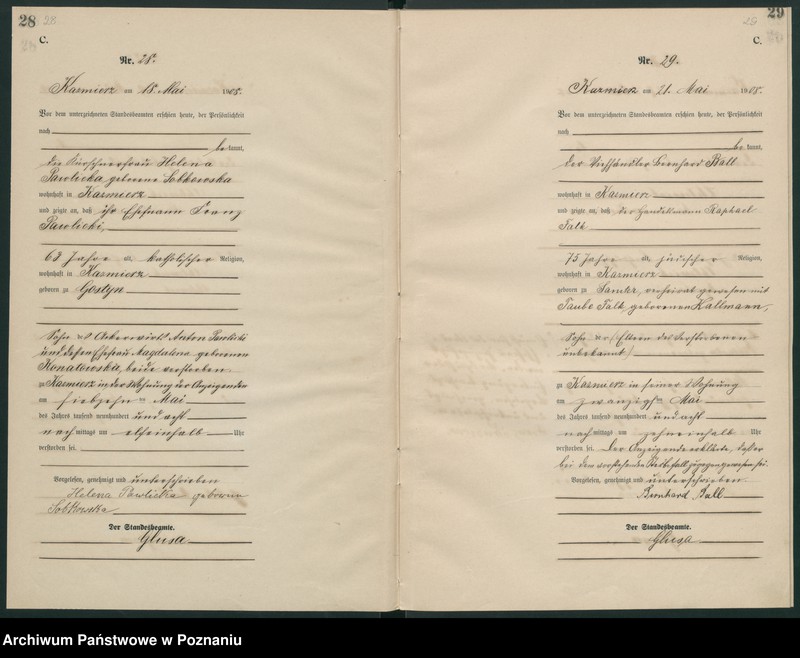 28 28
C.
Nr. 28.
Kazmierz am 18. Mai 1908.
Vor dem unterzeichneten Standesbeamten erschien heute, der Persönlichkeit
nach
be kannt,
die Kürschnerfrau Helena
Pawlicka geborene Sobkowska
wohnhaft in Kazmierz
und zeigte an, daß ihr Ehemann Franz
Pawlicki,
68 Jahre alt, katholischer Religion,
wohnhaft in Kazmierz
geboren zu Gostyn
Sohn des Ackerwirts Anton Pawlicki
und dessen Ehefrau Magdalena geborenen
Konatowska, beide verstorben
zu Kazmierz in der Wohnung der Anzeigenden
am siebzehn ten Mai
des Jahres tausend neunhundert und acht
nach mittags um elfeinhalb Uhr
verstorben sei.
Vorgelesen, genehmigt und unterschrieben
Helena Pawlicka geborene
Sobkowska
Der Standesbeamte.
Glusa
29 29
C.
Nr. 29.
Kazmierz am 21. Mai 1908.
Vor dem unterzeichneten Standesbeamten erschien heute, der Persönlichkeit
nach
be kannt,
der Viehhändler Bernhard Ball
wohnhaft in Kazmierz
und zeigte an, daß der Handelsmann Raphael
Falk
75 Jahre alt, jüdischer Religion,
wohnhaft in Kazmierz
geboren zu Samter, verheirat gewesen mit
Taube Falk, geborenen Hallmann,
Sohn der (Eltern des Verstorbenen
unbekannt)
zu Kazmierz in seiner Wohnung
am zwanzigsten Mai
des Jahres tausend neunhundert und acht
nach mittags um zehneinhalb Uhr
verstorben sei. Der Anzeigende erklärte, daß er
bei dem vorstehenden Sterbefall zugegen gewesen sei.
Vorgelesen, genehmigt und unterschrieben
Bernhard Ball
Der Standesbeamte.
Glusa
Archiwum Państwowe w Poznaniu